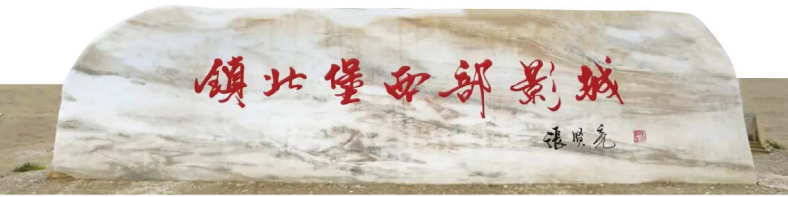 鎮北堡西部影城
張賢亮